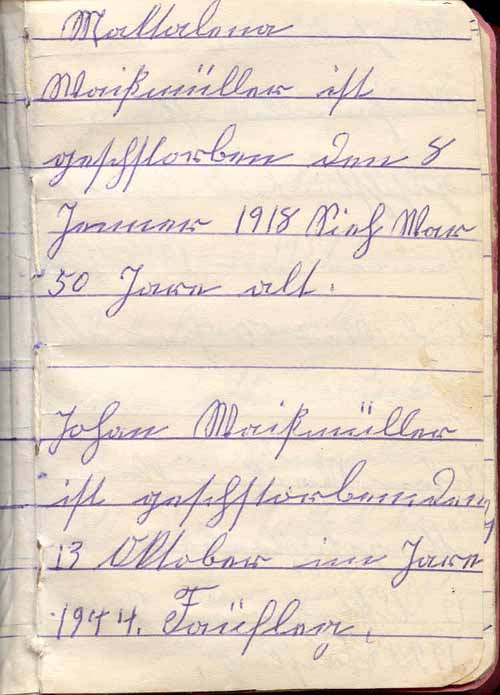 Maltalena
Waißmüller ist
geschstorben den 8
Jenner 1918 Sieh War
50 Jare alt.
Johan Waißmüller
ist geschstorben den
13 Oktober im Jare
1944.